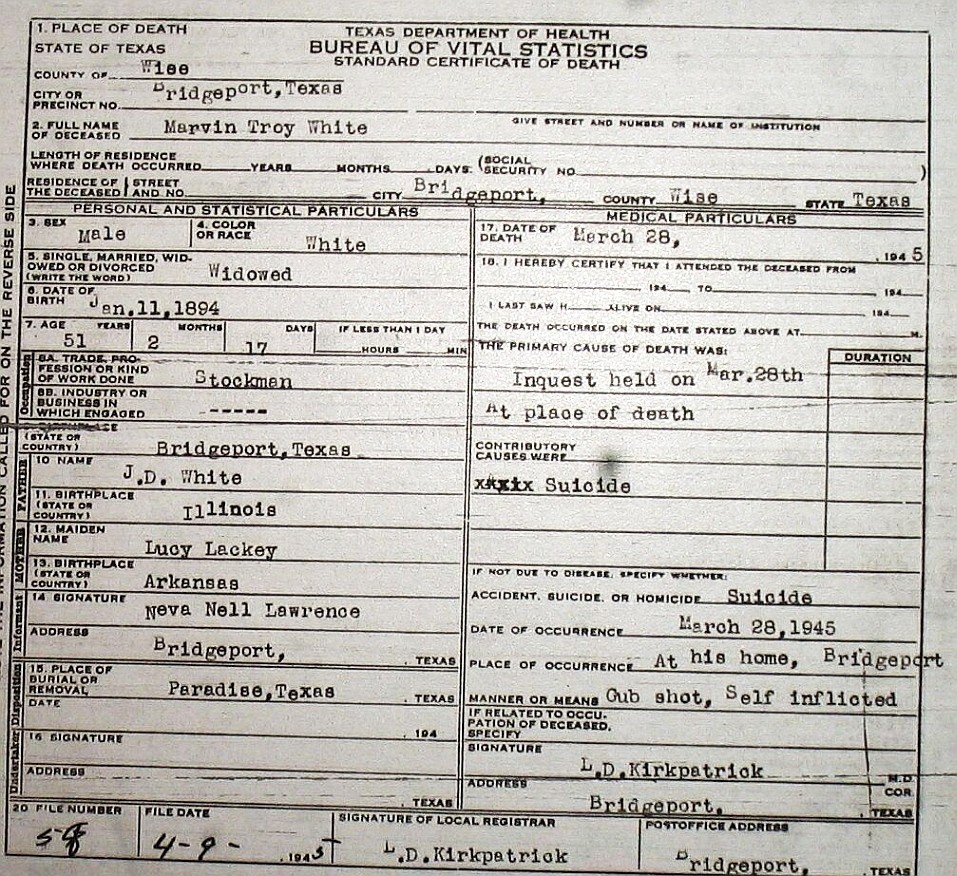 1. PLACE OF DEATH
STATE OF TEXAS
TEXAS DEPARTMENT OF HEALTH
BUREAU OF VITAL STATISTICS
STANDARD CERTIFICATE OF DEATH
COUNTY OF Wise
CITY OR PRECINCT NO. Bridgeport, Texas
GIVE STREET AND NUMBER OR NAME OF INSTITUTION
2. FULL NAME OF DECEASED Marvin Troy White
LENGTH OF RESIDENCE WHERE DEATH OCCURRED YEARS MONTHS DAYS (SOCIAL SECURITY NO. )
RESIDENCE OF THE DECEASED STREET AND NO. CITY Bridgeport, COUNTY Wise STATE Texas
PERSONAL AND STATISTICAL PARTICULARS
3. SEX Male
4. COLOR OR RACE White
5. SINGLE, MARRIED, WIDOWED OR DIVORCED (WRITE THE WORD) Widowed
6. DATE OF BIRTH Jan.11,1894
7. AGE YEARS MONTHS DAYS IF LESS THAN 1 DAY
51 2 17 HOURS MIN
Occupation
8A. TRADE, PROFESSION OR KIND OF WORK DONE Stockman
8B. INDUSTRY OR BUSINESS IN WHICH ENGAGED -----
BIRTHPLACE (STATE OR COUNTRY) Bridgeport,Texas
FATHER
10 NAME J.D. White
11. BIRTHPLACE (STATE OR COUNTRY) Illinois
MOTHER
12. MAIDEN NAME Lucy Lackey
13. BIRTHPLACE (STATE OR COUNTRY) Arkansas
Informant
14 SIGNATURE Neva Nell Lawrence
ADDRESS Bridgeport, , TEXAS
Disposition
15. PLACE OF BURIAL OR REMOVAL Paradise,Texas , TEXAS
DATE , 194
Undertaker
16 SIGNATURE
ADDRESS , TEXAS
MEDICAL PARTICULARS
17. DATE OF DEATH March 28, , 1945
18. I HEREBY CERTIFY THAT I ATTENDED THE DECEASED FROM
194 TO 194
I LAST SAW H ALIVE ON 194
THE DEATH OCCURRED ON THE DATE STATED ABOVE AT M.
THE PRIMARY CAUSE OF DEATH WAS: DURATION
Inquest held on Mar.28th
At place of death
CONTRIBUTORY CAUSES WERE
Suicide
IF NOT DUE TO DISEASE, SPECIFY WHETHER:
ACCIDENT, SUICIDE, OR HOMICIDE Suicide
DATE OF OCCURRENCE March 28,1945
PLACE OF OCCURRENCE At his home, Bridgeport
MANNER OR MEANS Gub shot, Self inflicted
IF RELATED TO OCCUPATION OF DECEASED, SPECIFY
SIGNATURE L.D.Kirkpatrick M.D. COR.
ADDRESS Bridgeport, , TEXAS
20 FILE NUMBER
FILE DATE 4-9- , 1945
SIGNATURE OF LOCAL REGISTRAR L.D.Kirkpatrick
POSTOFFICE ADDRESS Bridgeport, , TEXAS
INFORMATION CALLED FOR ON THE REVERSE SIDE